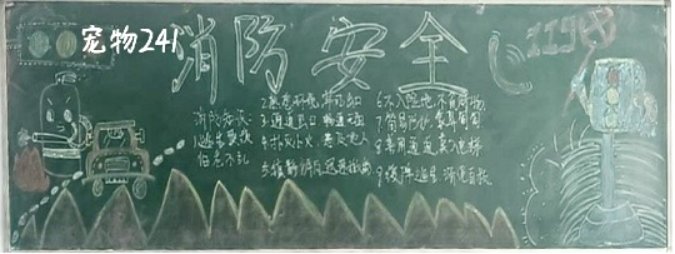 宠物241
消防安全
119
消防知识:
1.逃生预演
临危不乱
2.熟悉环境,牢记出口
3.通道出口,畅通无阻
4.扑灭小火,惠及他人
5.镇静辨向,迅速撤离
6.不入险地,不贪财物
7.简易防护,蒙鼻匍匐
8.善用通道,莫入电梯
9.缓降逃生,滑绳自救